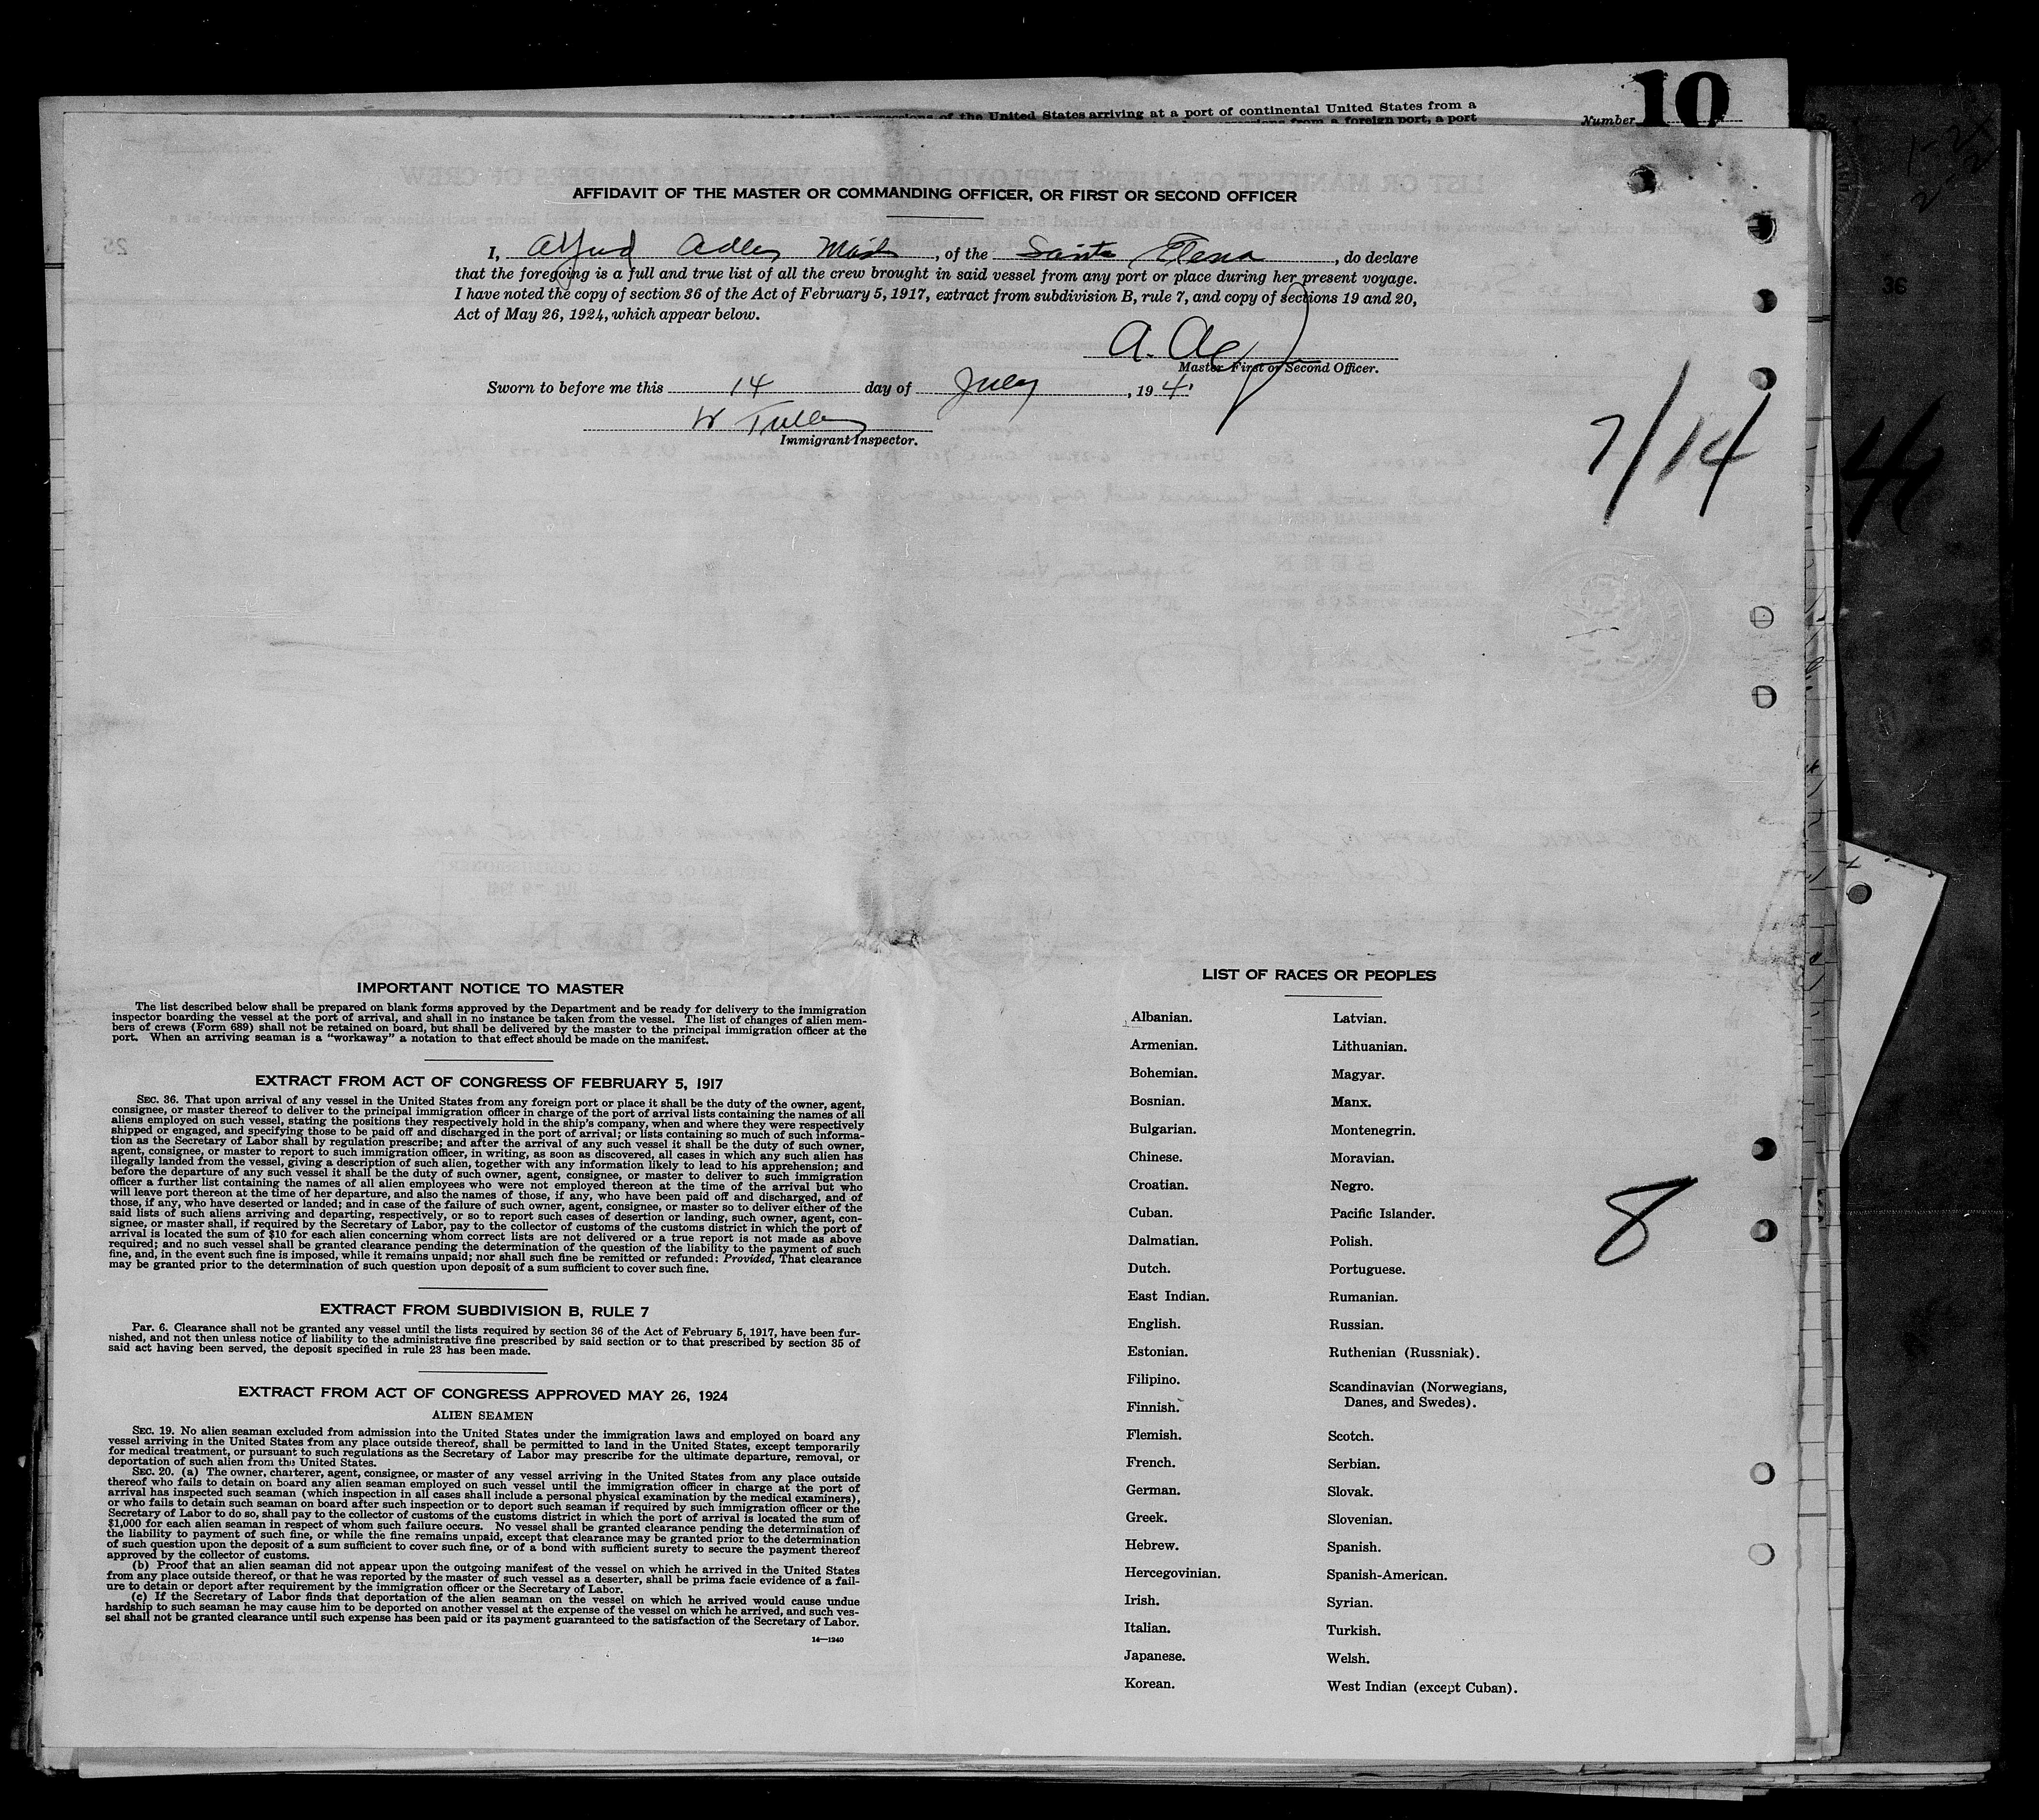 of the United States arriving at a port of continental United States from a
from a foreign port, a port
Number 10
AFFIDAVIT OF THE MASTER OR COMMANDING OFFICER, OR FIRST OR SECOND OFFICER
I, Alfred Adler Mast, of the Santa Elena, do declare
that the foregoing is a full and true list of all the crew brought in said vessel from any port or place during her present voyage.
I have noted the copy of section 36 of the Act of February 5, 1917, extract from subdivision B, rule 7, and copy of sections 19 and 20,
Act of May 26, 1924, which appear below.
A.
Master First or Second Officer.
Sworn to before me this 14 day of July, 194
W Tulley
Immigrant Inspector.
7/14
36
IMPORTANT NOTICE TO MASTER
The list described below shall be prepared on blank forms approved by the Department and be ready for delivery to the immigration
inspector boarding the vessel at the port of arrival, and shall in no instance be taken from the vessel. The list of changes of alien mem-
bers of crews (Form 689) shall not be retained on board, but shall be delivered by the master to the principal immigration officer at the
port. When an arriving seaman is a "workaway" a notation to that effect should be made on the manifest.
EXTRACT FROM ACT OF CONGRESS OF FEBRUARY 5, 1917
SEC. 36. That upon arrival of any vessel in the United States from any foreign port or place it shall be the duty of the owner, agent,
consignee, or master thereof to deliver to the principal immigration officer in charge of the port of arrival lists containing the names of all
aliens employed on such vessel, stating the positions they respectively hold in the ship's company, when and where they were respectively
shipped or engaged, and specifying those to be paid off and discharged in the port of arrival; or lists containing so much of such informa-
tion as the Secretary of Labor shall by regulation prescribe; and after the arrival of any such vessel it shall be the duty of such owner,
agent, consignee, or master to report to such immigration officer, in writing, as soon as discovered, all cases in which any such alien has
illegally landed from the vessel, giving a description of such alien, together with any information likely to lead to his apprehension; and
before the departure of any such vessel it shall be the duty of such owner, agent, consignee, or master to deliver to such immigration
officer a further list containing the names of all alien employees who were not employed thereon at the time of the arrival but who
will leave port thereon at the time of her departure, and also the names of those, if any, who have been paid off and discharged, and of
those, if any, who have deserted or landed; and in case of the failure of such owner, agent, consignee, or master so to deliver either of the
said lists of such aliens arriving and departing, respectively, or so to report such cases of desertion or landing, such owner, agent, con-
signee, or master shall, if required by the Secretary of Labor, pay to the collector of customs of the customs district in which the port of
arrival is located the sum of $10 for each alien concerning whom correct lists are not delivered or a true report is not made as above
required; and no such vessel shall be granted clearance pending the determination of the question of the liability to the payment of such
fine, and, in the event such fine is imposed, while it remains unpaid; nor shall such fine be remitted or refunded: Provided, That clearance
may be granted prior to the determination of such question upon deposit of a sum sufficient to cover such fine.
EXTRACT FROM SUBDIVISION B, RULE 7
Par. 6. Clearance shall not be granted any vessel until the lists required by section 36 of the Act of February 5, 1917, have been fur-
nished, and not then unless notice of liability to the administrative fine prescribed by said section or to that prescribed by section 35 of
said act having been served, the deposit specified in rule 23 has been made.
EXTRACT FROM ACT OF CONGRESS APPROVED MAY 26, 1924
ALIEN SEAMEN
SEC. 19. No alien seaman excluded from admission into the United States under the immigration laws and employed on board any
vessel arriving in the United States from any place outside thereof, shall be permitted to land in the United States, except temporarily
for medical treatment, or pursuant to such regulations as the Secretary of Labor may prescribe for the ultimate departure, removal, or
deportation of such alien from the United States.
SEC. 20. (a) The owner, charterer, agent, consignee, or master of any vessel arriving in the United States from any place outside
thereof who fails to detain on board any alien seaman employed on such vessel until the immigration officer in charge at the port of
arrival has inspected such seaman (which inspection in all cases shall include a personal physical examination by the medical examiners),
or who fails to detain such seaman on board after such inspection or to deport such seaman if required by such immigration officer or the
Secretary of Labor to do so, shall pay to the collector of customs of the customs district in which the port of arrival is located the sum of
$1,000 for each alien seaman in respect of whom such failure occurs. No vessel shall be granted clearance pending the determination of
the liability to payment of such fine, or while the fine remains unpaid, except that clearance may be granted prior to the determination
of such question upon the deposit of a sum sufficient to cover such fine, or of a bond with sufficient surety to secure the payment thereof
approved by the collector of customs.
(b) Proof that an alien seaman did not appear upon the outgoing manifest of the vessel on which he arrived in the United States
from any place outside thereof, or that he was reported by the master of such vessel as a deserter, shall be prima facie evidence of a fail-
ure to detain or deport after requirement by the immigration officer or the Secretary of Labor.
(c) If the Secretary of Labor finds that deportation of the alien seaman on the vessel on which he arrived would cause undue
hardship to such seaman he may cause him to be deported on another vessel at the expense of the vessel on which he arrived, and such ves-
sel shall not be granted clearance until such expense has been paid or its payment guaranteed to the satisfaction of the Secretary of Labor.
14—1240
LIST OF RACES OR PEOPLES
Albanian.
Armenian.
Bohemian.
Bosnian.
Bulgarian.
Chinese.
Croatian.
Cuban.
Dalmatian.
Dutch.
East Indian.
English.
Estonian.
Filipino.
Finnish.
Flemish.
French.
German.
Greek.
Hebrew.
Hercegovinian.
Irish.
Italian.
Japanese.
Korean.
Latvian.
Lithuanian.
Magyar.
Manx.
Montenegrin.
Moravian.
Negro.
Pacific Islander.
Polish.
Portuguese.
Rumanian.
Russian.
Ruthenian (Russniak).
Scandinavian (Norwegians,
Danes, and Swedes).
Scotch.
Serbian.
Slovak.
Slovenian.
Spanish.
Spanish-American.
Syrian.
Turkish.
Welsh.
West Indian (except Cuban).
8